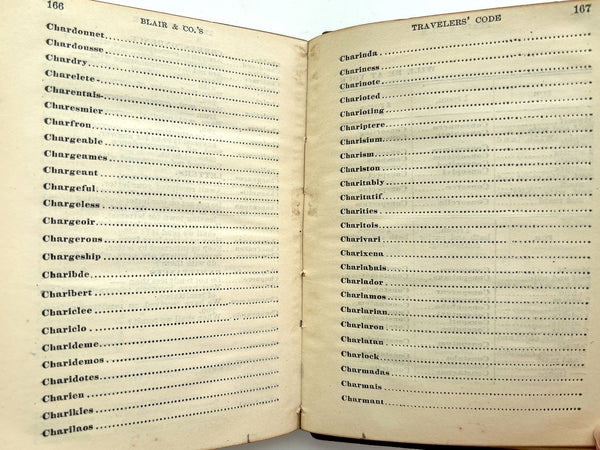 166
BLAIR & CO.'S
Chardonnet
Chardousse
Chardry
Charelete
Charentais
Charesmier
Charfron
Chargeable
Chargeames
Chargeant
Chargeful
Chargeless
Chargeoir
Chargerons
Chargeship
Charibde
Charibert
Chariclee
Chariclo
Charideme
Charidemos
Charidotes
Charien
Charikles
Charilaos
TRAVELERS' CODE
167
Charinda
Chariness
Charinote
Charioted
Charioting
Chariptere
Charisium
Charism
Chariston
Charitably
Charitatif
Charities
Charitois
Charivari
Charixena
Charlabais
Charlador
Charlamos
Charlarian
Charlaron
Charlatan
Charlock
Charmadas
Charmais
Charmant